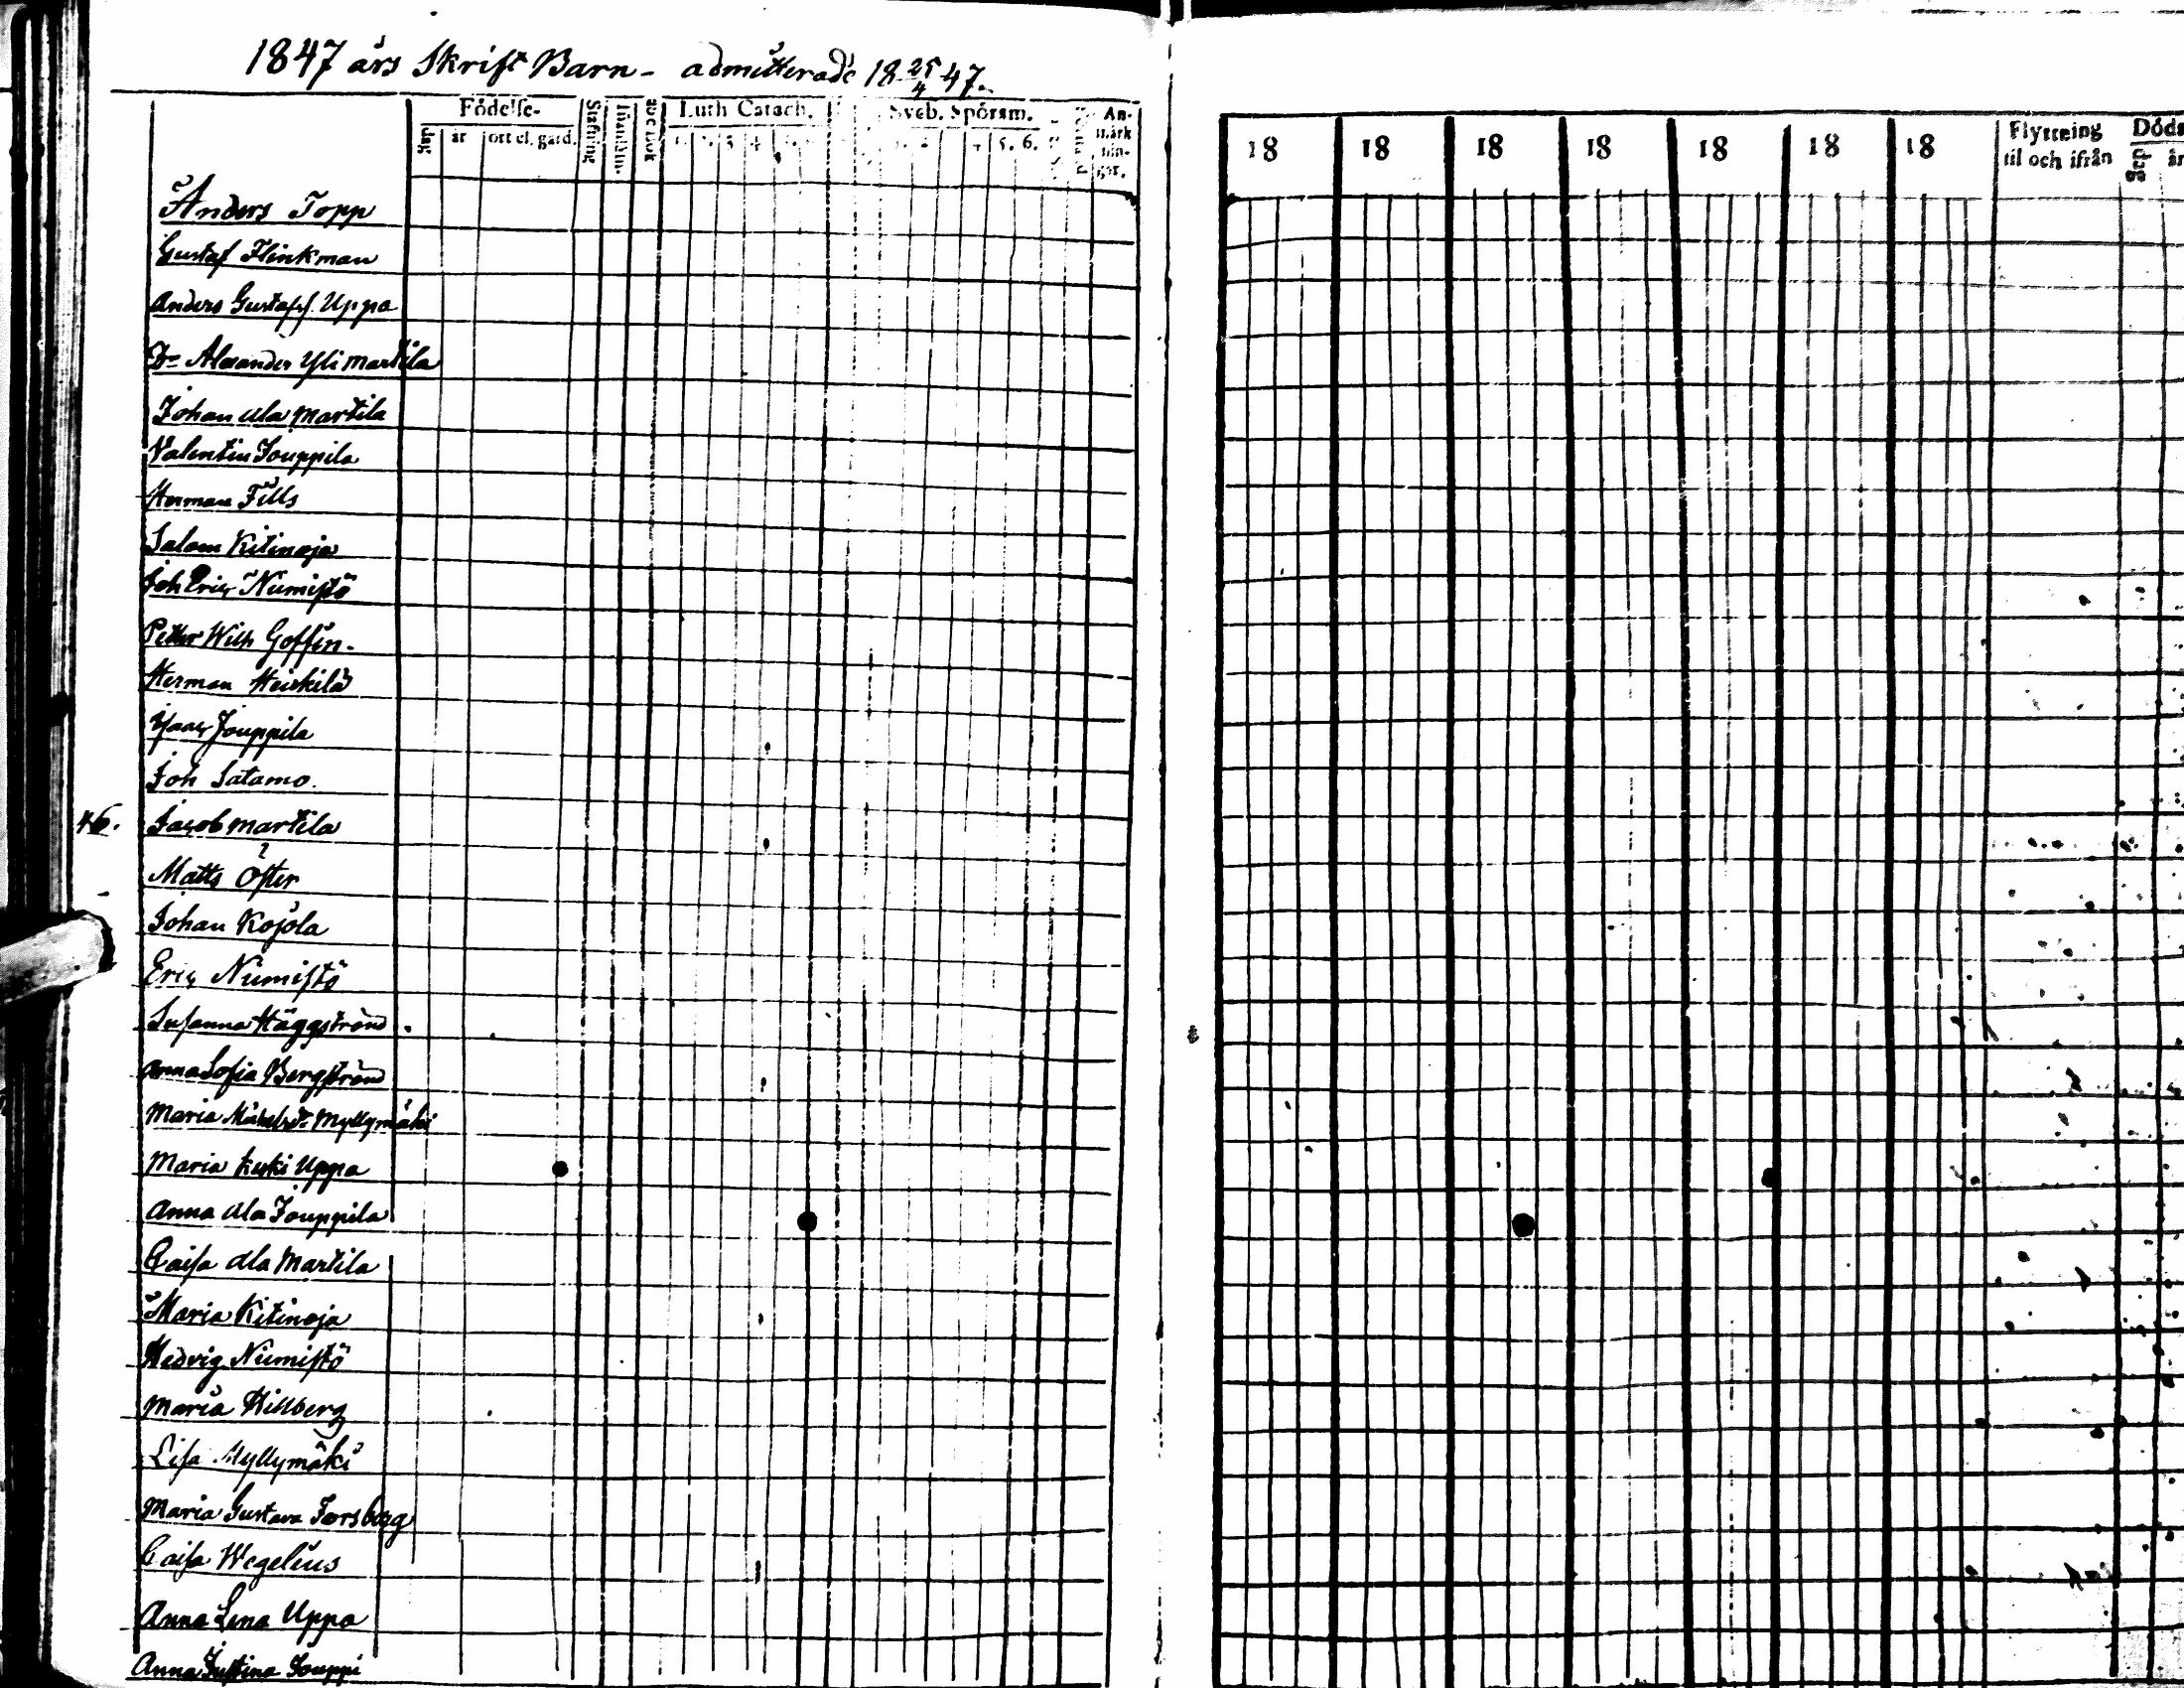 1847 års Skrift Barn - admitterade 18 25/4 47.
Födelse- Stafning Luth Catach. Sveb. Spörsm. An-märk nin-gar.
dag år ort el. gård. 5. 6.
18 18 18 18 18 18 18 Flyttning til och ifrån Döds dag år
Anders Topp
Gustaf Flinkman
Anders Gustafss. Uppa
Do Alexander Yli Martila
Johan Ala Martila
Valentin Jouppila
Herman Fills
Salom Kitinoja
Joh Eric Niemistö
Petter Wilh Goffin.
Herman Heikkilä
Isaac Jouppila
Joh Satamo.
46. Jacob Martila
Matts Öster
Johan Kojola
Eric Niemistö
Susanna Häggström
Anna Sofia Bergström
Maria Myllymäki
Maria Keski Uppa
Anna Ala Jouppila
Caisa Ala Martila
Maria Kitinoja
Hedvig Niemistö
Maria Killberg
Lisa Myllymäki
Maria Gustava Forsberg
Caisa Wegelius
Anna Lena Uppa
Anna Justina Jouppi